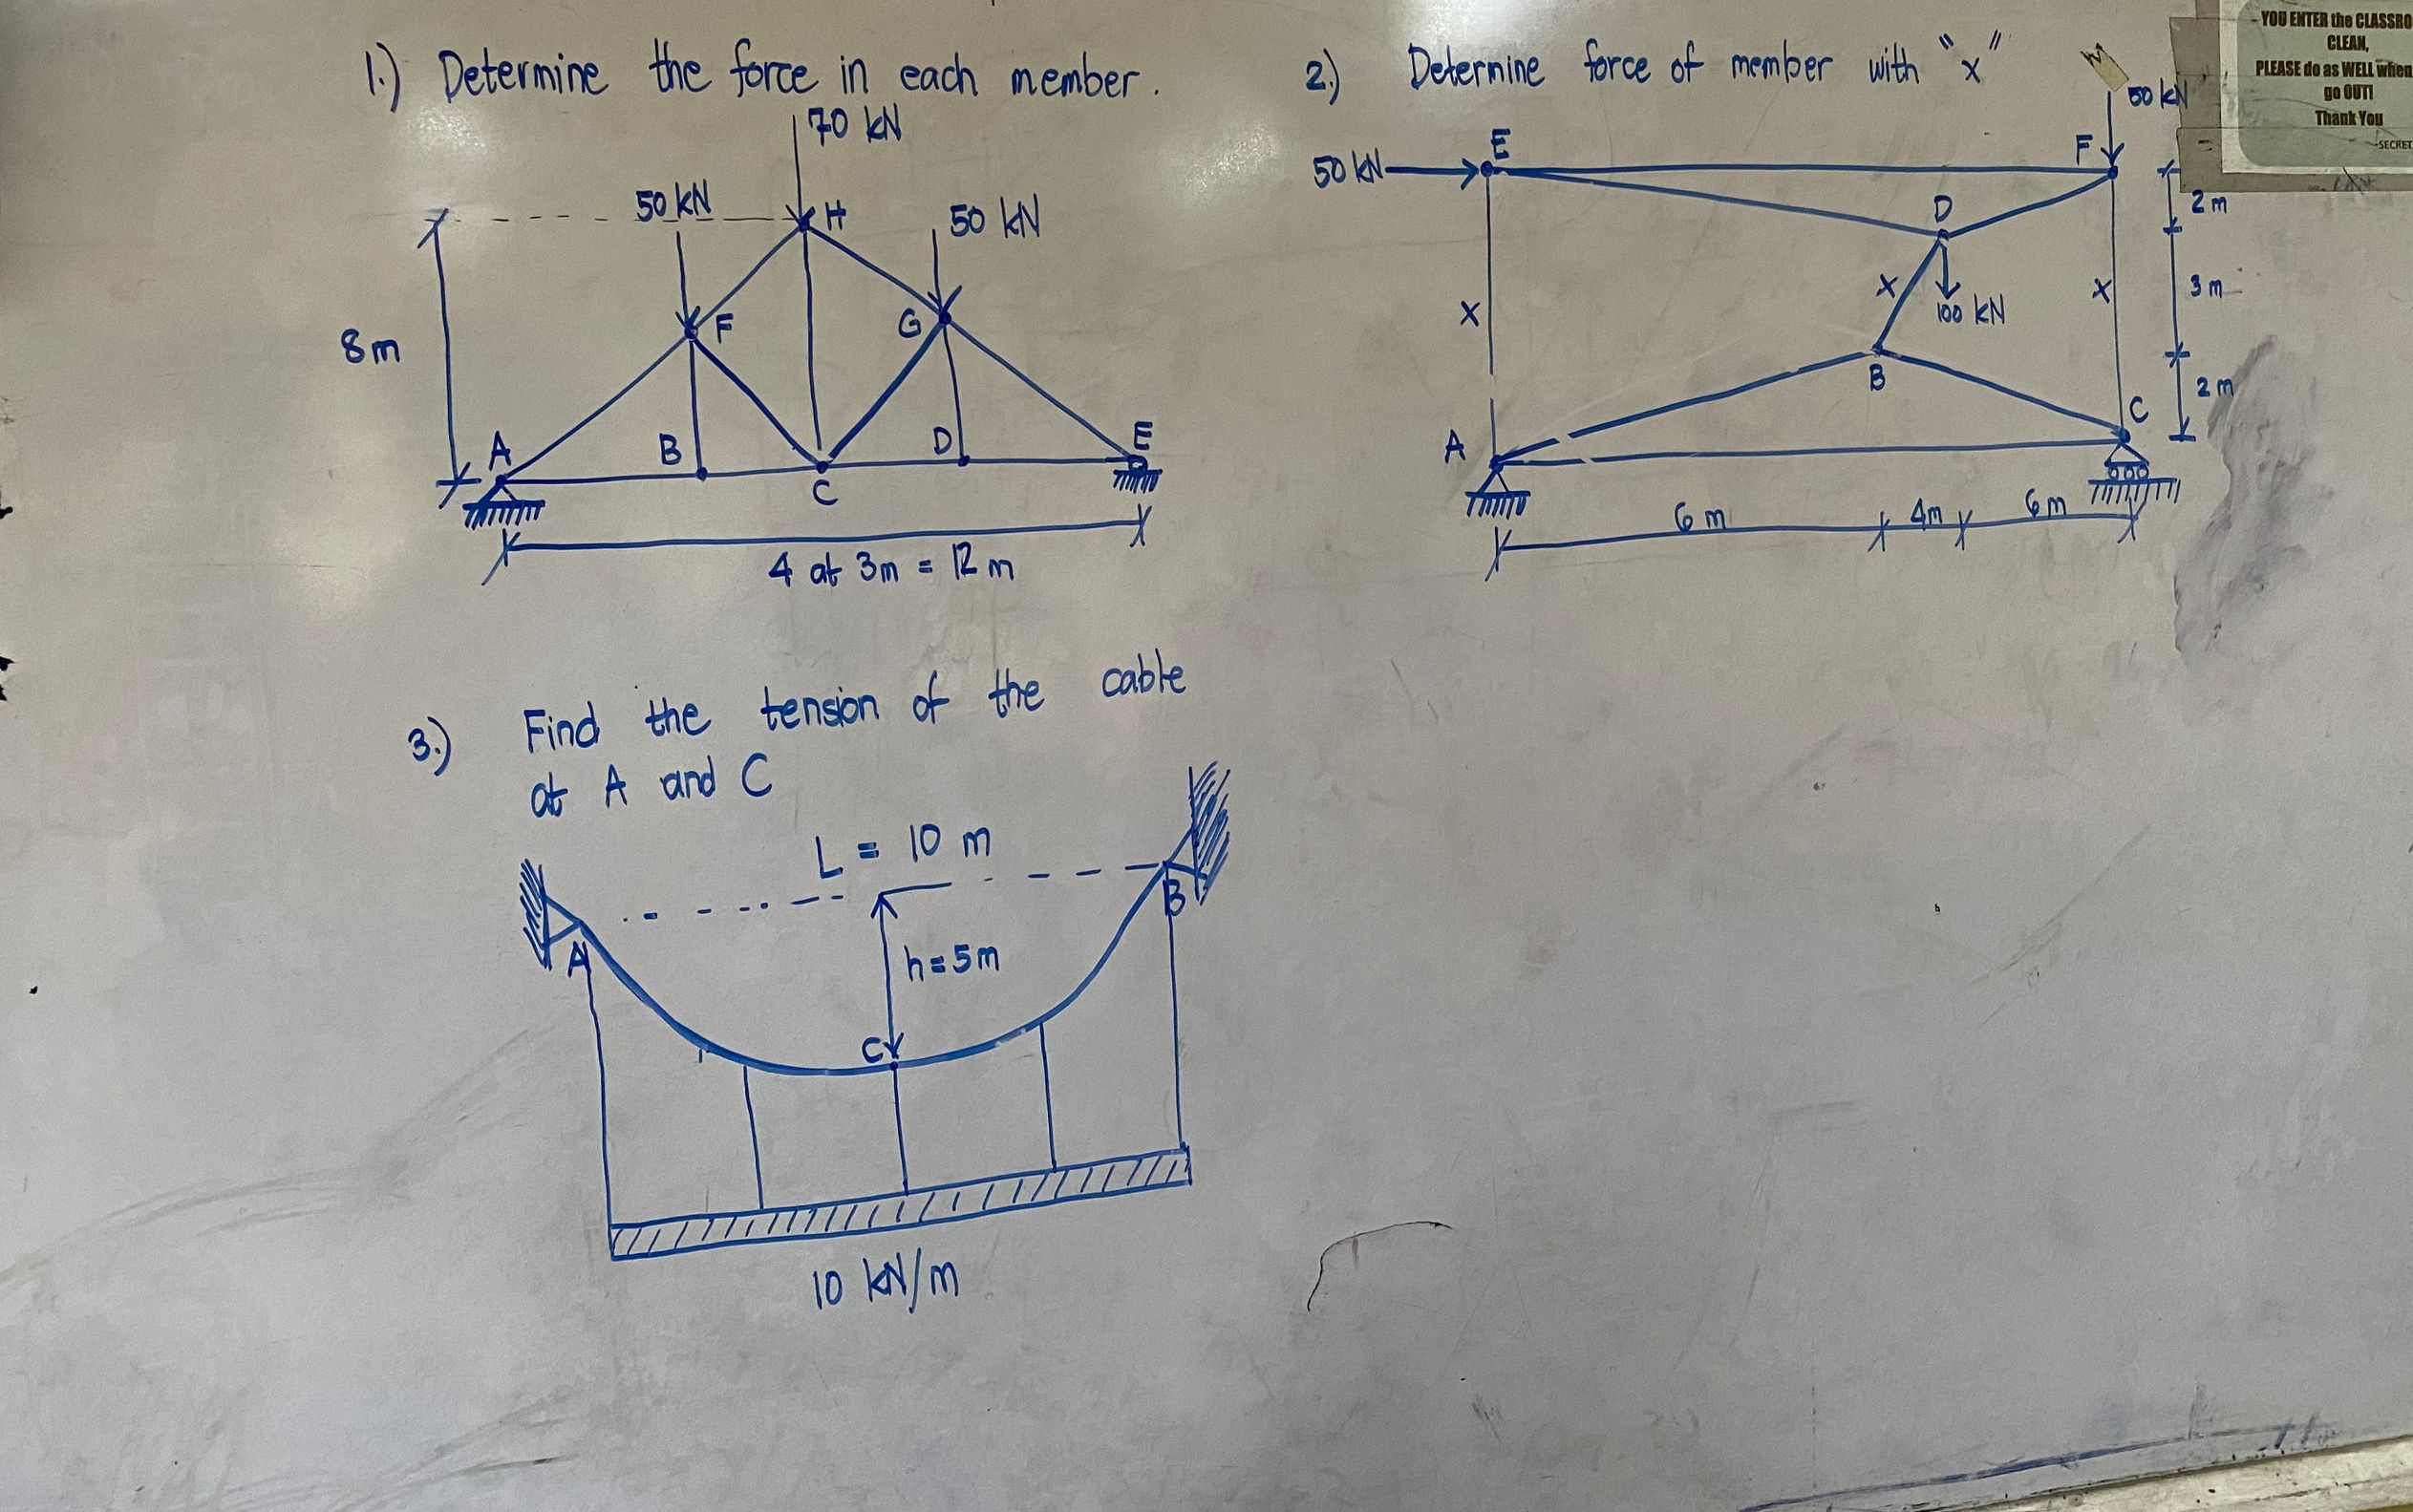 1.) Determine the force in each member.
70 kN
50 kN
H
50 kN
8m
F
G
A
B
C
D
E
4 at 3m = 12 m
2.) Determine force of member with "x"
50 kN
50 kN
E
F
2 m
D
x
x
100 kN
x
3 m
B
2 m
A
C
6 m
4m
6 m
3.) Find the tension of the cable
at A and C
L = 10 m
A
B
h = 5m
C
10 kN/m
YOU ENTER the CLASSRO
CLEAN,
PLEASE do as WELL when
go OUT!
Thank You
-SECRET